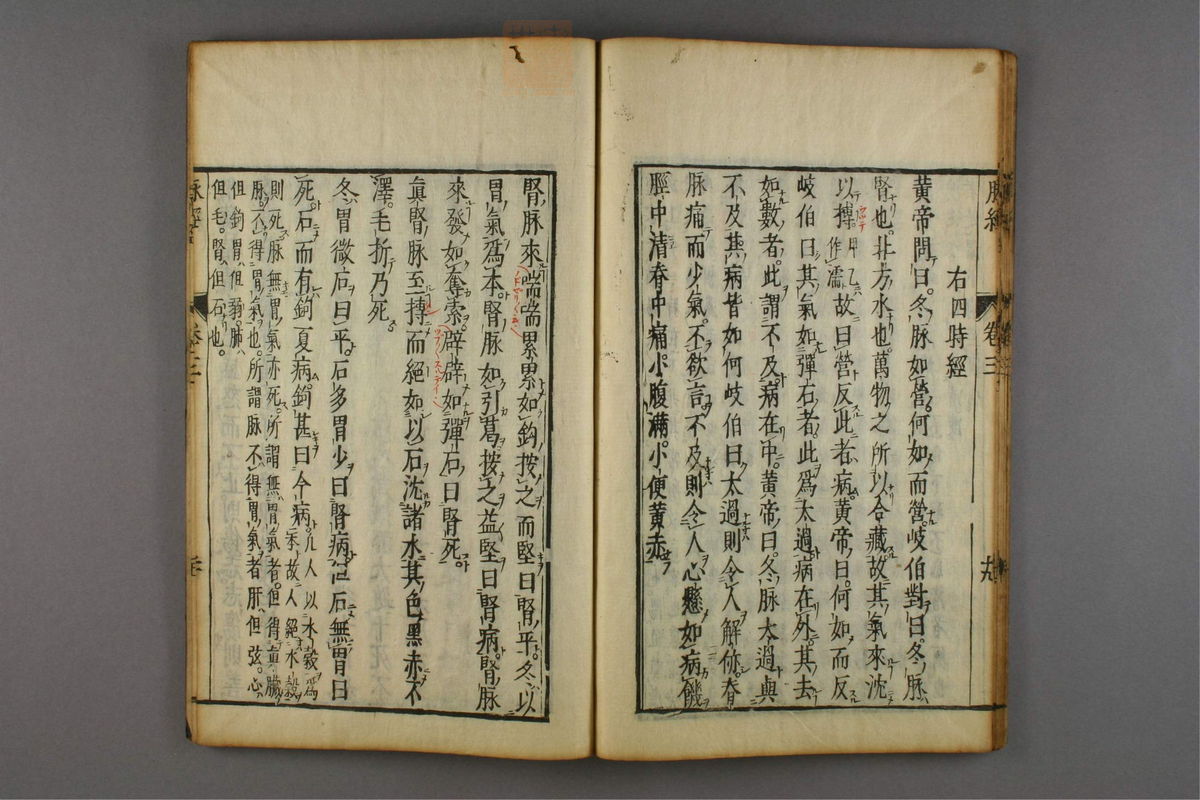 脉經
卷三
右四時經
黃帝問曰冬脉如營何如而營岐伯對曰冬脉
腎也北方水也萬物之所以合藏故其氣來沈
以搏甲乙作濡故曰營反此者病黃帝曰何如而反
岐伯曰其氣如彈石者此爲太過病在外其去
如數者此謂不及病在中黃帝曰冬脉太過與
不及其病皆如何岐伯曰太過則令人解㑊脊
脉痛而少氣不欲言不及則令人心懸如病飢
䏚中清脊中痛小腹滿小便黃赤
腎脉來喘喘累累如鈎按之而堅曰腎平冬以
胃氣爲本腎脉如引葛按之益堅曰腎病腎脉
來發如奪索辟辟如彈石曰腎死
眞腎脉至摶而絕如以石沈諸水其色黑赤不
澤毛折乃死
冬胃微石曰平石多胃少曰腎病但石無胃曰
死石而有鉤曰夏病鉤甚曰今病凡人以水穀爲
本故人絕水穀
則死脉無胃氣亦死所謂無胃氣者但得眞臟
脉不得胃氣也所謂脉不得胃氣者肝但弦心
但鉤胃但弱肺
但毛腎但石也
脉經
卷三